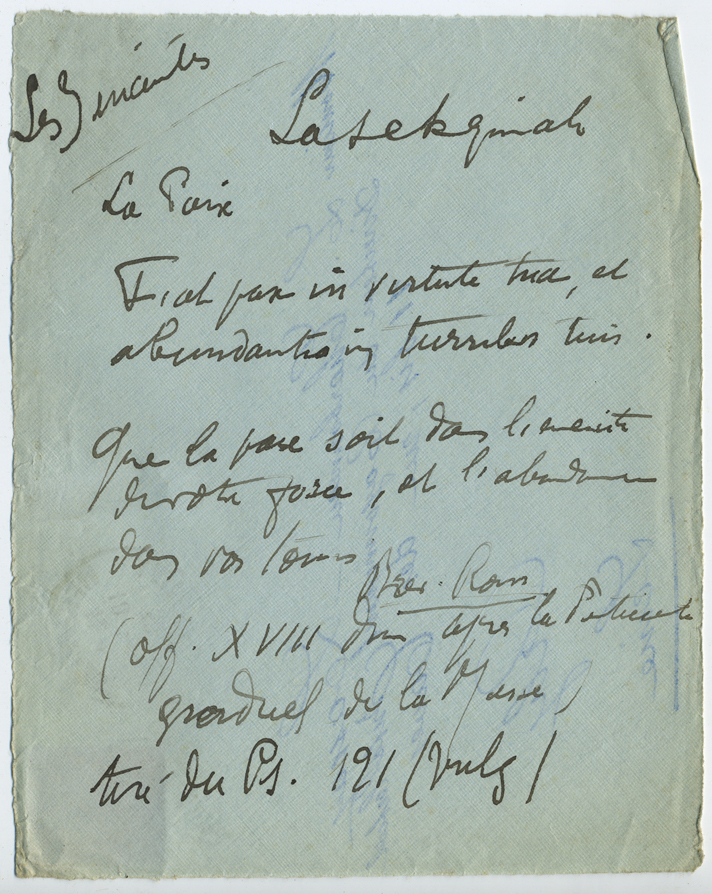 Les
La sekginah
La Paix
Fiat pax in virtute tua, et
abundantia in turribus tuis.
Que la paix soit dans l'enceinte
de votre force, et l'abondance
dans vos tours
Brev. Rom
(Off. XVIII dim après la Pentecôte
graduel de la Messe)
tiré du Ps. 121 (Vulg)